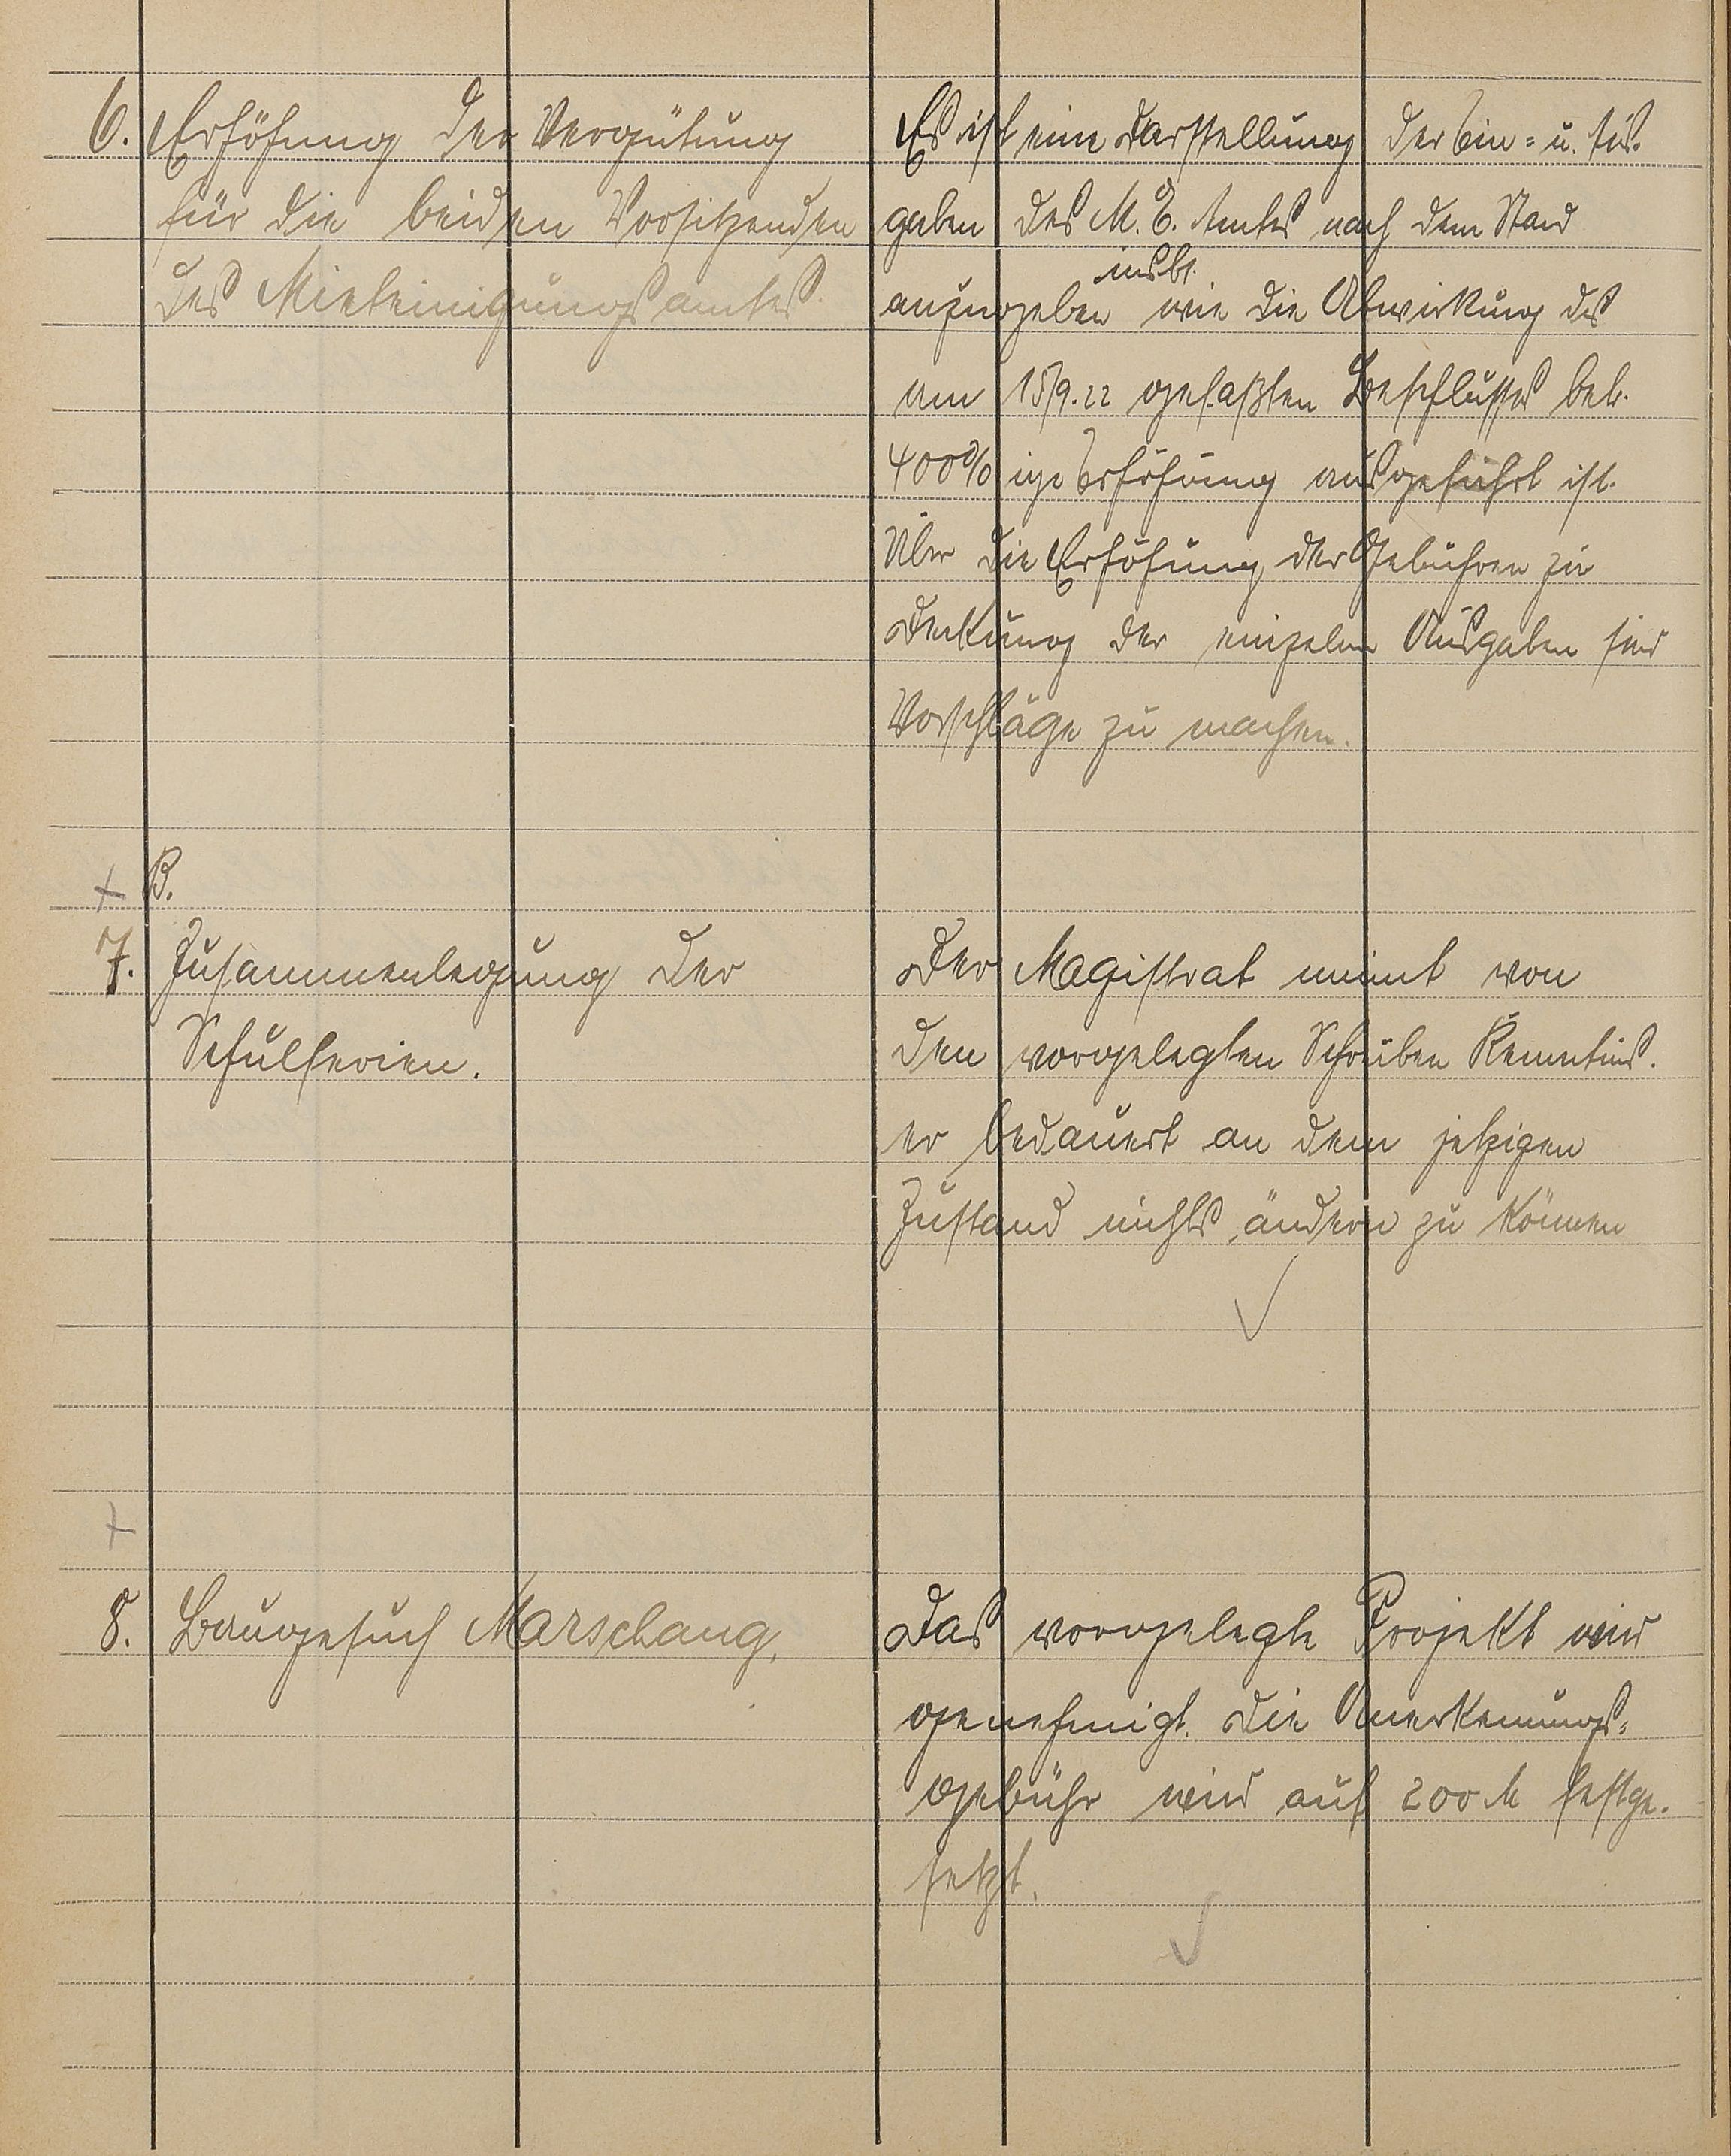 6. Erhöhung der Vergütung
für die beiden Vorsitzenden
des Mieteinigungsamtes.
Es ist eine Darstellung der Ein= u. Aus-
gaben des M. E. Amtes nach dem Stand
anzugeben insbe. wie die Abwirkung des
am 15/9.22 gefaßten Beschlusses betr.
400%ige Erhöhung ausgeführt ist.
Über die Erhöhung der Gebühren zu
Deckung der einzelnen Ausgaben sind
Vorschläge zu machen.
+ B.
7. Zusammenlegung der
Schulferien.
Der Magistrat nimt von
den vorgelegten Schreiben Kenntnis.
er bedauert an dem jetzigen
Zustand nichts ändern zu können
+
8. Baugesuch Marschang.
Das vorgelegte Projekt wird
genehmigt. Die Anerkennungs=
gebühr wird auf 200 M festge-
setzt.